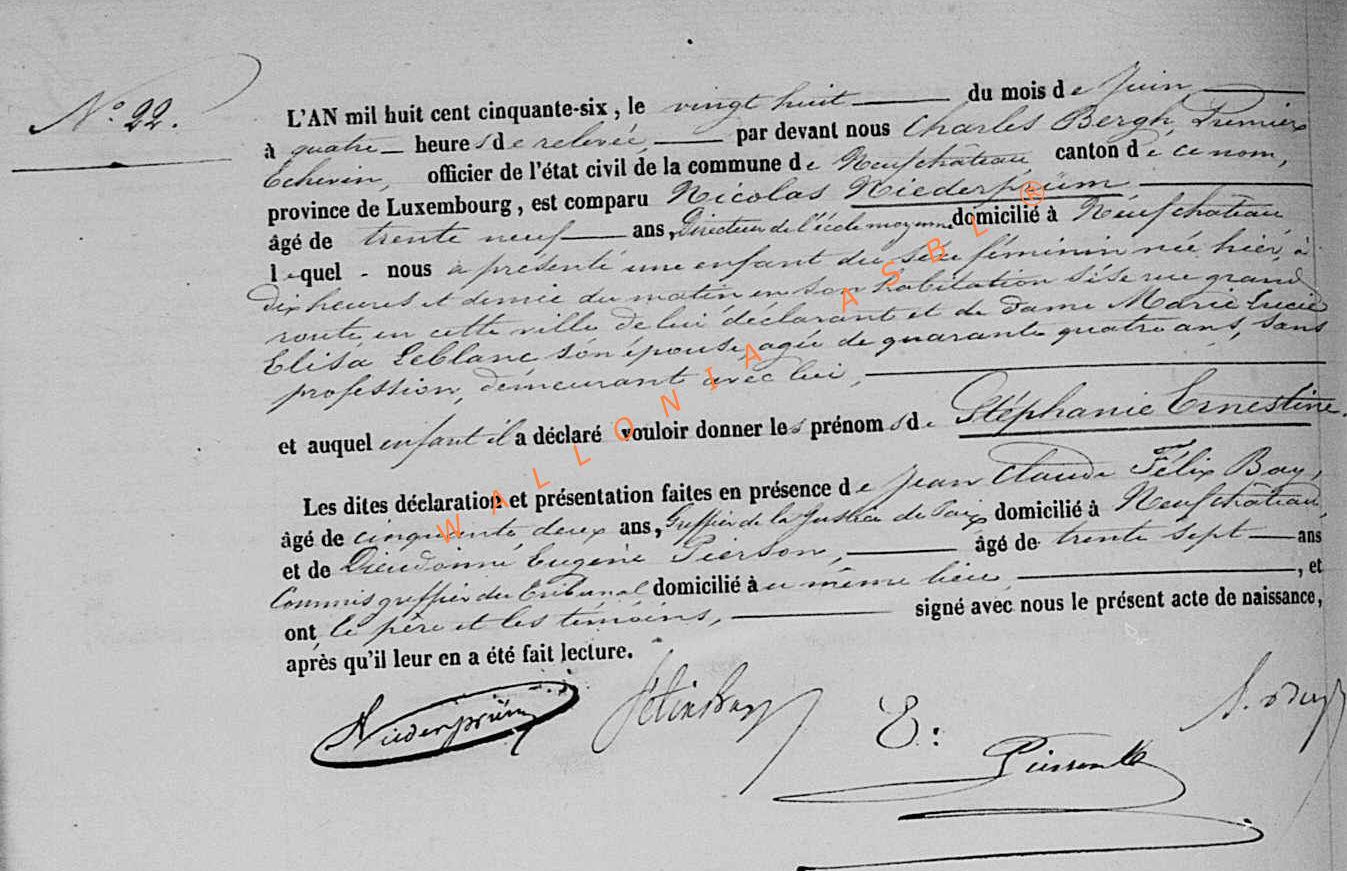 N° 22.
L'AN mil huit cent cinquante-six, le vingt huit du mois de Juin
à quatre heures de relevée, par devant nous Charles Bergh, Premier
Echevin, officier de l'état civil de la commune de Neufchâteau, canton de ce nom,
province de Luxembourg, est comparu Nicolas Niederprüm
âgé de trente neuf ans, Directeur de l'école moyenne domicilié à Neufchâteau
lequel nous a présenté une enfant du sexe féminin née hier, à
dix heures et demie du matin en son habitation sise rue grand
route, en cette ville de lui déclarant et de Dame Marie Lucie
Elisa Leblanc son épouse, agée de quarante quatre ans, sans
profession, demeurant avec lui,
et auquel enfant il a déclaré vouloir donner les prénoms de Stéphanie Ernestine.
Les dites déclaration et présentation faites en présence de Jean Claude Félix Bay,
âgé de cinquante deux ans, Greffier de la Justice de Paix domicilié à Neufchâteau,
et de Dieudonné Eugène Pierson, âgé de trente sept ans
Commis greffier du Tribunal domicilié au même lieu, et
ont, le père et les témoins, signé avec nous le présent acte de naissance,
après qu'il leur en a été fait lecture.
Niederprüm Félix Bay E: Pierson
WALLONIA ASBL ®